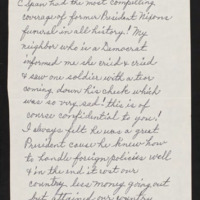 C Span had the most compelling
coverage of former President Nixons
funeral in all history! My
neighbor who is a Democrat
informed me she cried & cried
& saw one soldier with a tear
coming down his cheek which
was so very sad! this is of
course confidential to you!
I always felt he was a great
President cause he knew how
to handle foreign policies well
& in the end it cost our
country less money going out
but our country